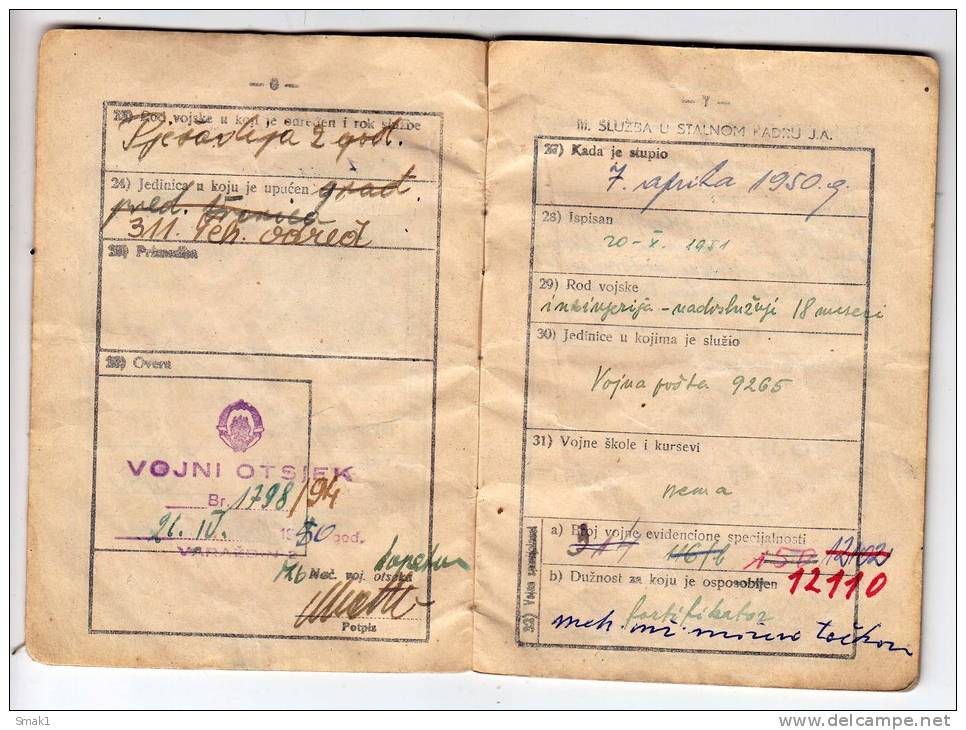 — 6 —
23) Rod vojske u koji je određen i rok službe
Pješadija 2 god.
24) Jedinica u koju je upućen grad.
311. Teh. odred
25) Primedba
26) Overa
VOJNI OTSJEK
Br. 1798/94
21. IV. 1950 god.
VARAŽDIN-2
Nač. voj. otseka
Potpis
— 7 —
III. SLUŽBA U STALNOM KADRU J.A.
27) Kada je stupio
7. aprila 1950. g.
28) Ispisan
20-X. 1951
29) Rod vojske
inžinjerija - nadoslužuje 18 meseci
30) Jedinice u kojima je služio
Vojna pošta 9265
31) Vojne škole i kursevi
nema
32) Vojna specijalnost
a) Broj vojne evidencione specijalnosti
b) Dužnost za koju je osposobljen 12110
fortifikator
meh.
Smak1
www.delcampe.net